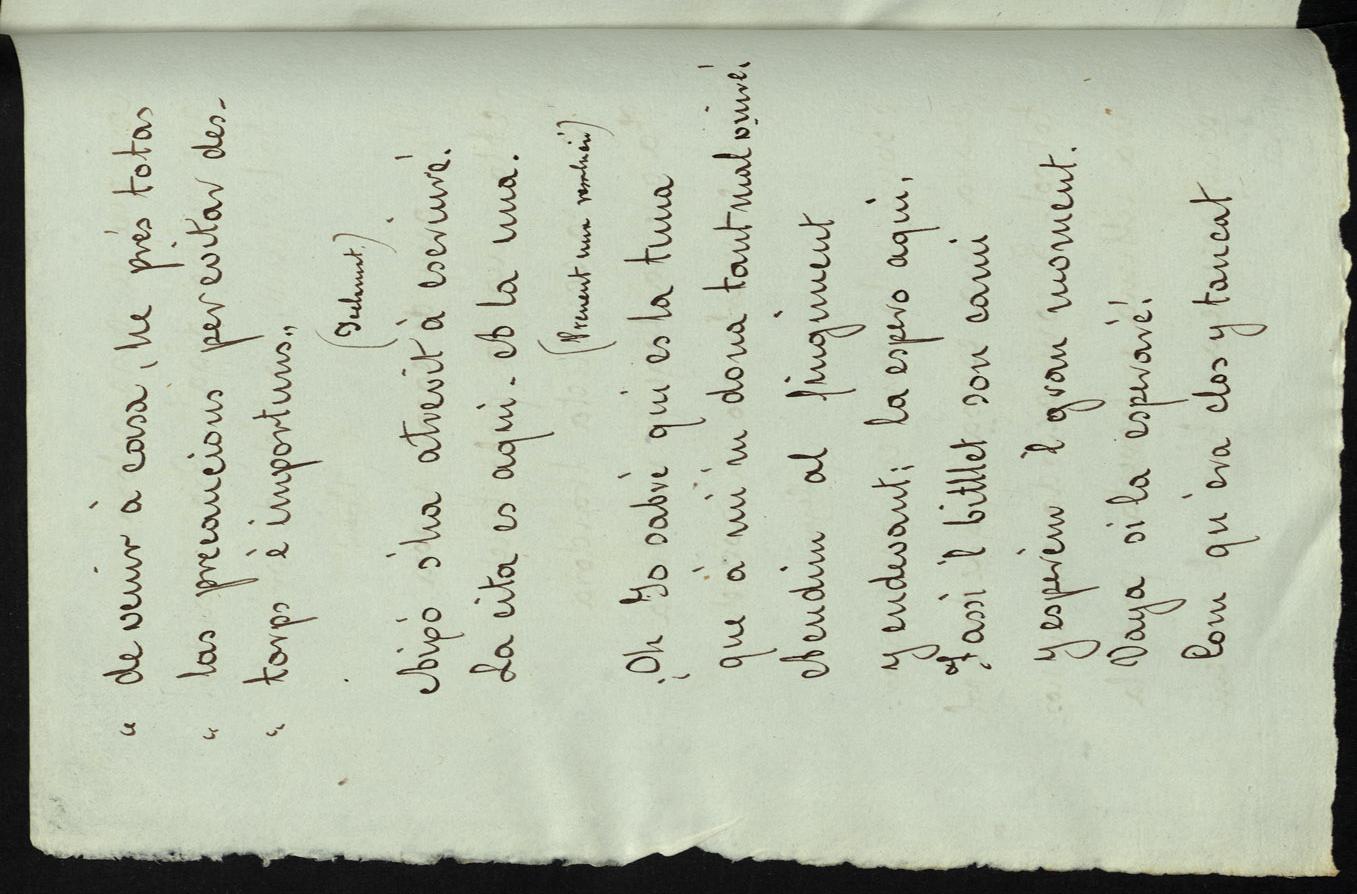 " de venir á casa, he prés totas
" las precaucions per evitar des-
" torps é importuns„
(Declamat.)
Aixó s'ha atrevit á escriurê.
La cita es aquí. A la una.
(Prenent una resolució)
¡Oh Jo sabré qui es la tuna
que á mí'm dona tant mal viure!
Acudim al fingiment
y endevant; la espero aquí,
¿Fassi'l bitllet son camí
y esperém 'l gran moment.
Vaya si la esperaré!
Com qu'era clos y tancat